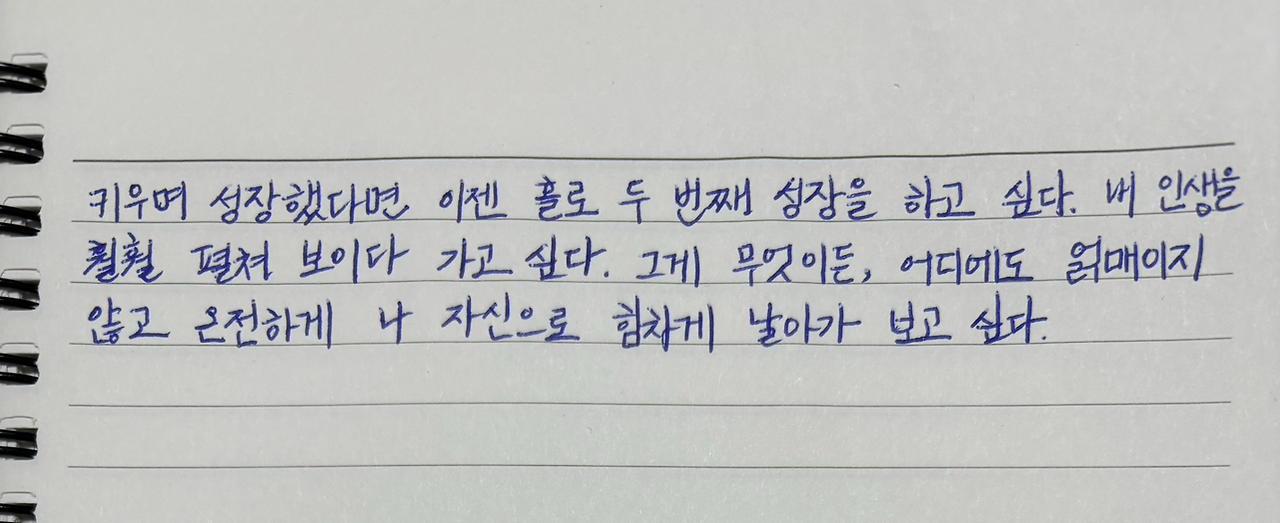 키우며 성장했다면 이젠 홀로 두 번째 성장을 하고 싶다. 내 인생을
훨훨 펼쳐 보이다 가고 싶다. 그게 무엇이든, 어디에도 얽매이지
않고 온전하게 나 자신으로 힘차게 날아가 보고 싶다.